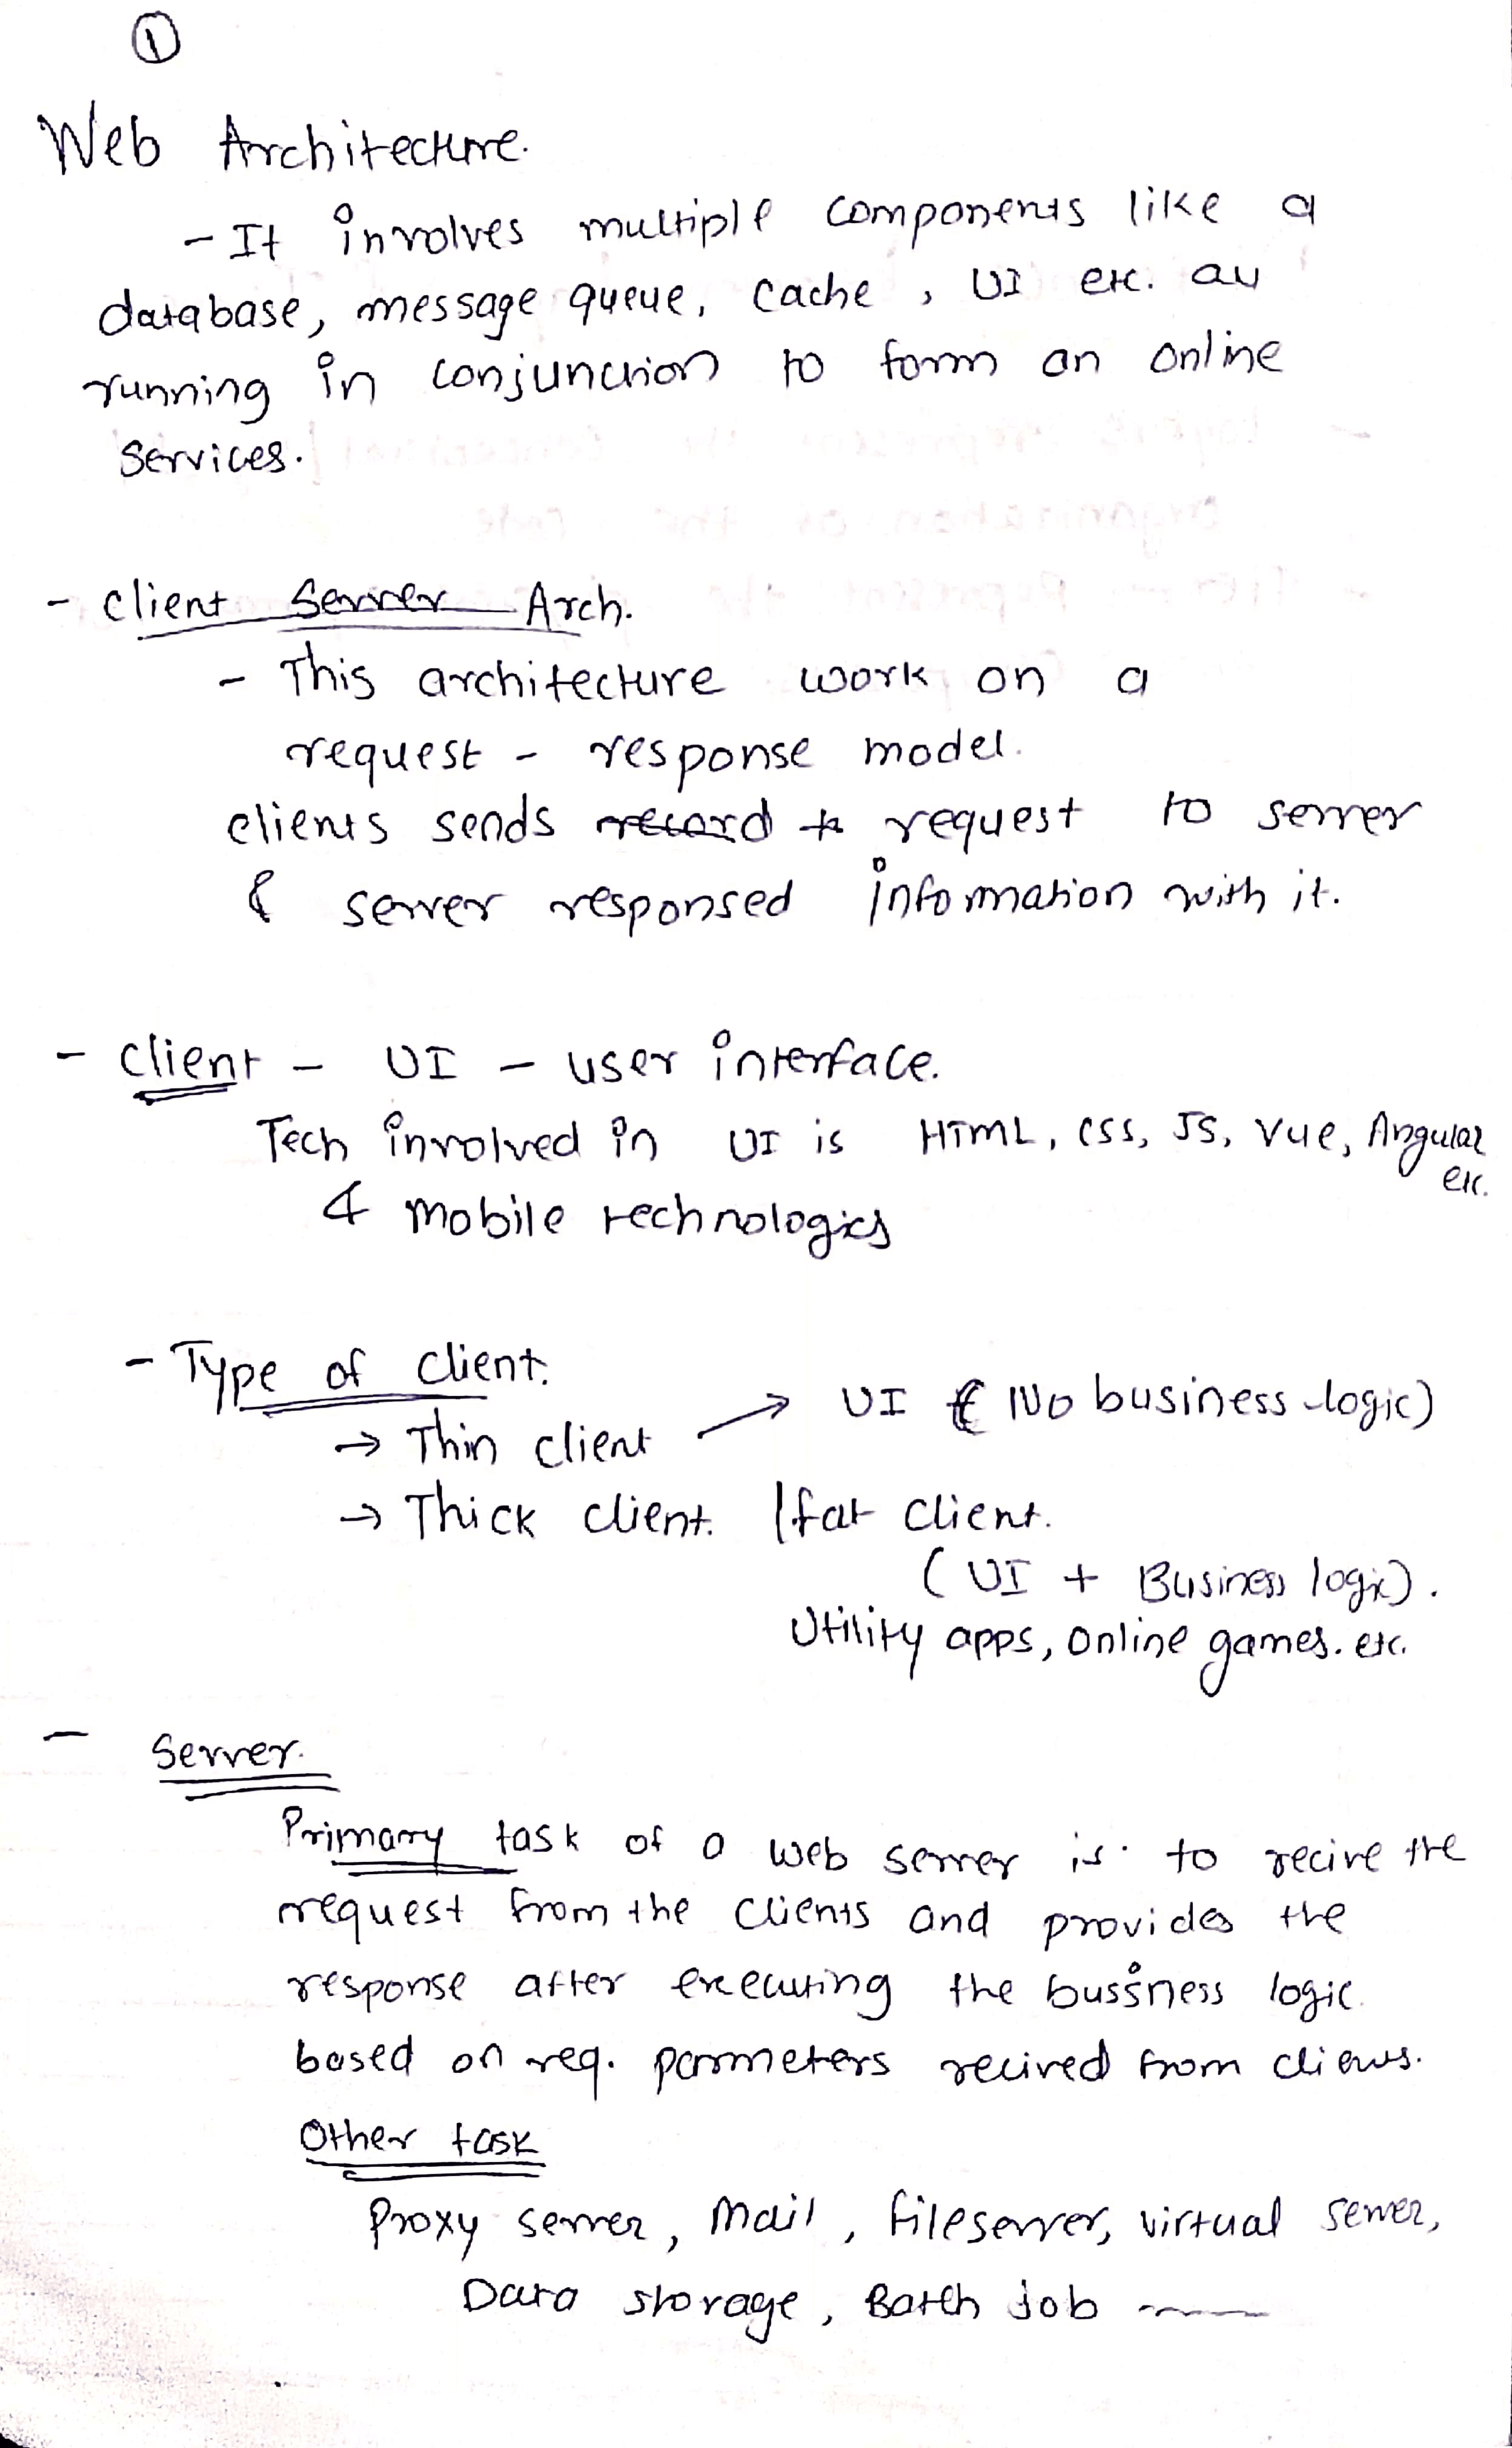 1
Web Architecture.
- It involves multiple components like a
database, message queue, cache, UI etc. all
running in conjunction to form an online
services.
- Client Server Arch.
- This architecture work on a
request - response model.
clients sends record to request to server
& server responsed information with it.
- Client - UI - user interface.
Tech involved in UI is HTML, CSS, JS, Vue, Angular
etc.
& mobile technologies
- Type of client.
→ Thin client → UI ( No business logic)
→ Thick client. / fat client.
( UI + Business logic).
Utility apps, online games. etc.
- Server.
Primary task of a web server is to recive the
request from the clients and provides the
response after executing the bussiness logic
based on req. parmeters recived from clients.
Other task
Proxy server, Mail, fileserver, virtual server,
Data storage, Batch job